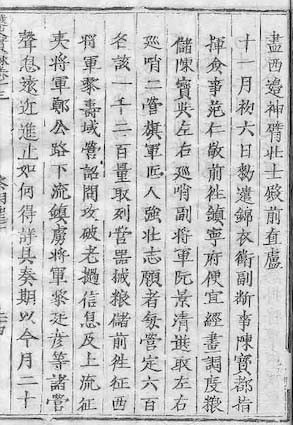 盡西邊神臂壯士殿前直廬
十一月初六日勑遣錦衣衛副斷事陳寶都指
揮僉事范仁敢前徃鎮寧府便宜經畫調度粮
儲陳寶與左右廵哨副將軍阮景清選取左右
廵哨二營旗軍匹人強壮志願者每營定六百
名該一千二百量取列營器械粮儲前徃征西
將軍黎壽域營詔問攻破老撾信息及上流征
夷將軍鄭公路下流鎮虜將軍黎廷彦等諸營
聲息遠近進止如何得詳具奏期以今月二十